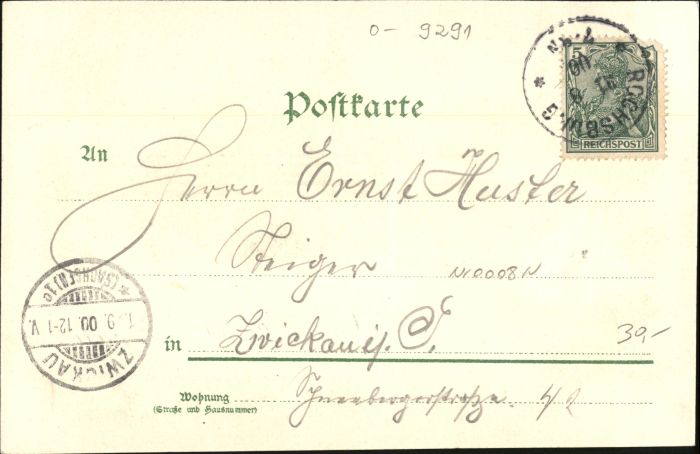 0- 9291
5
REICHSPOST
ROCHSBURG
Postkarte
An
Herrn Ernst Huster
Steiger
N10008N
in Zwickau i/. S.
30,-
Wohnung Schneebergerstraße
(Straße und Hausnummer)
* (SACHSEN) 1c
1. 9. 00. 12-1 V.
ZWICKAU